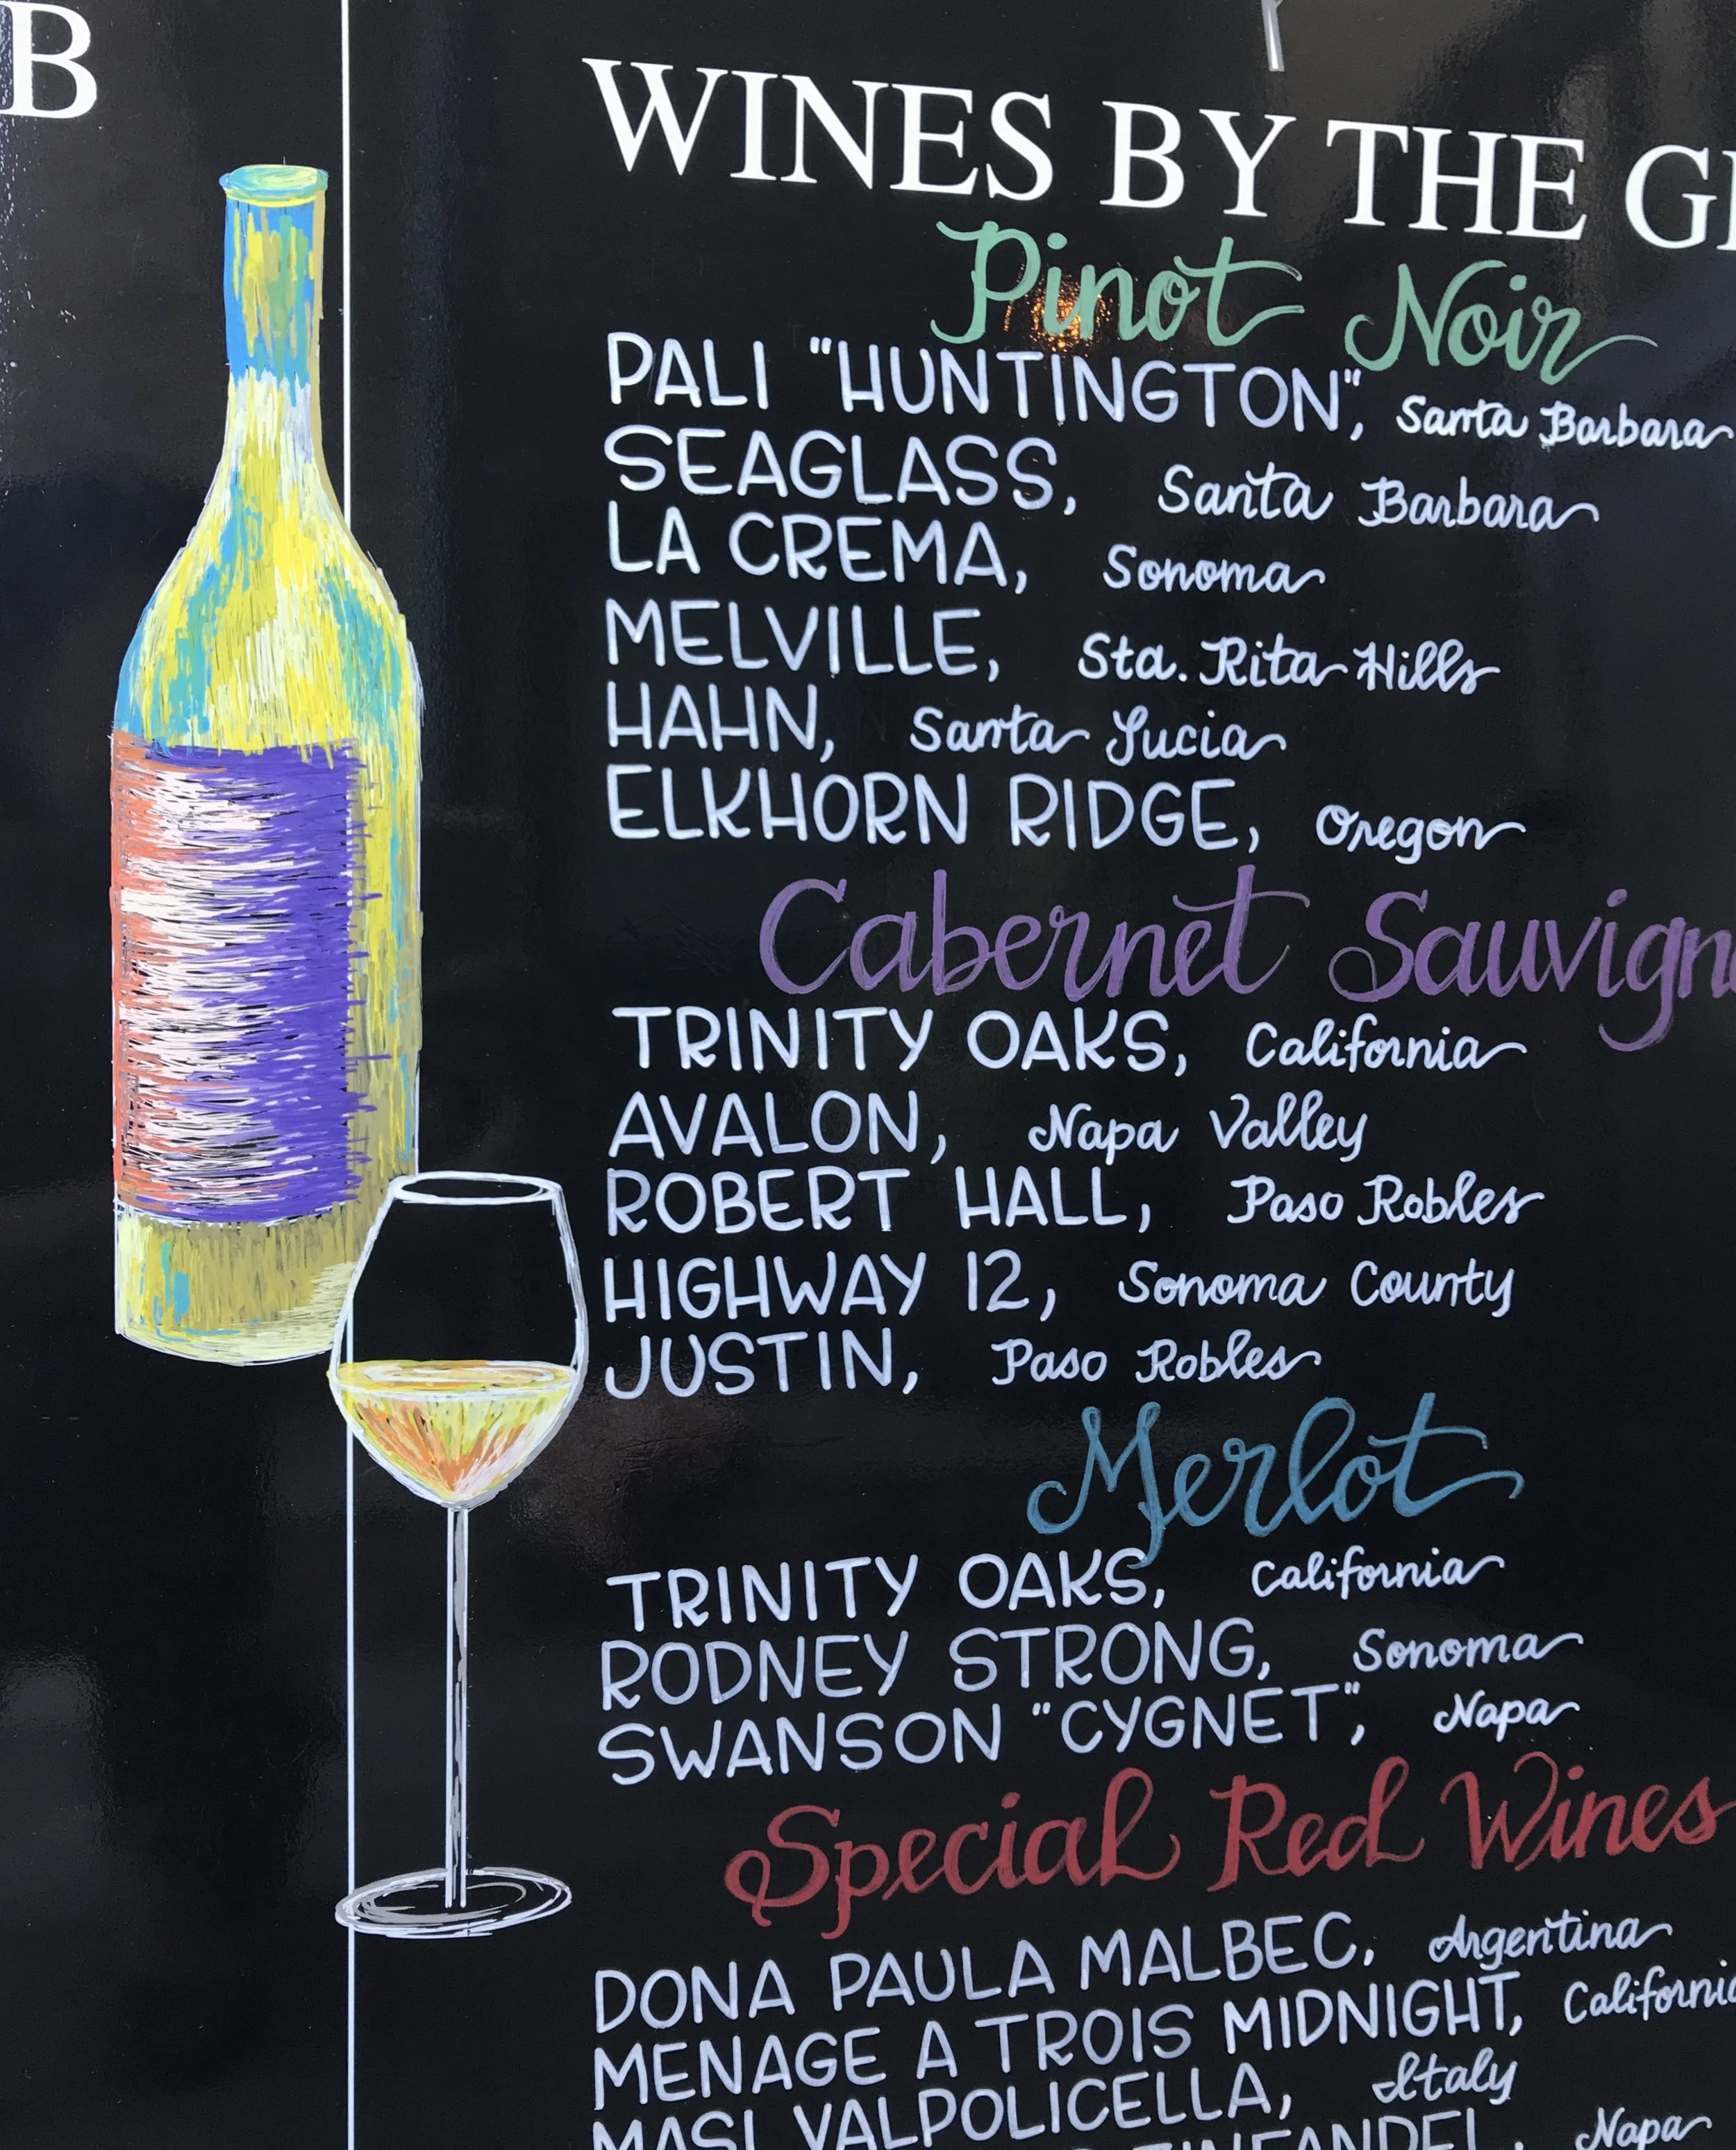 B
WINES BY THE
Pinot Noir
PALI "HUNTINGTON", Santa Barbara
SEAGLASS, Santa Barbara
LA CREMA, Sonoma
MELVILLE, Sta. Rita Hills
HAHN, Santa Lucia
ELKHORN RIDGE, Oregon
Cabernet Sauvign
TRINITY OAKS, California
AVALON, Napa Valley
ROBERT HALL, Paso Robles
HIGHWAY 12, Sonoma County
JUSTIN, Paso Robles
Merlot
TRINITY OAKS, California
RODNEY STRONG, Sonoma
SWANSON "CYGNET", Napa
Special Red Wines
DONA PAULA MALBEC, Argentina
MENAGE A TROIS MIDNIGHT, California
MASI VALPOLICELLA, Italy
ZINFANDEL, Napa